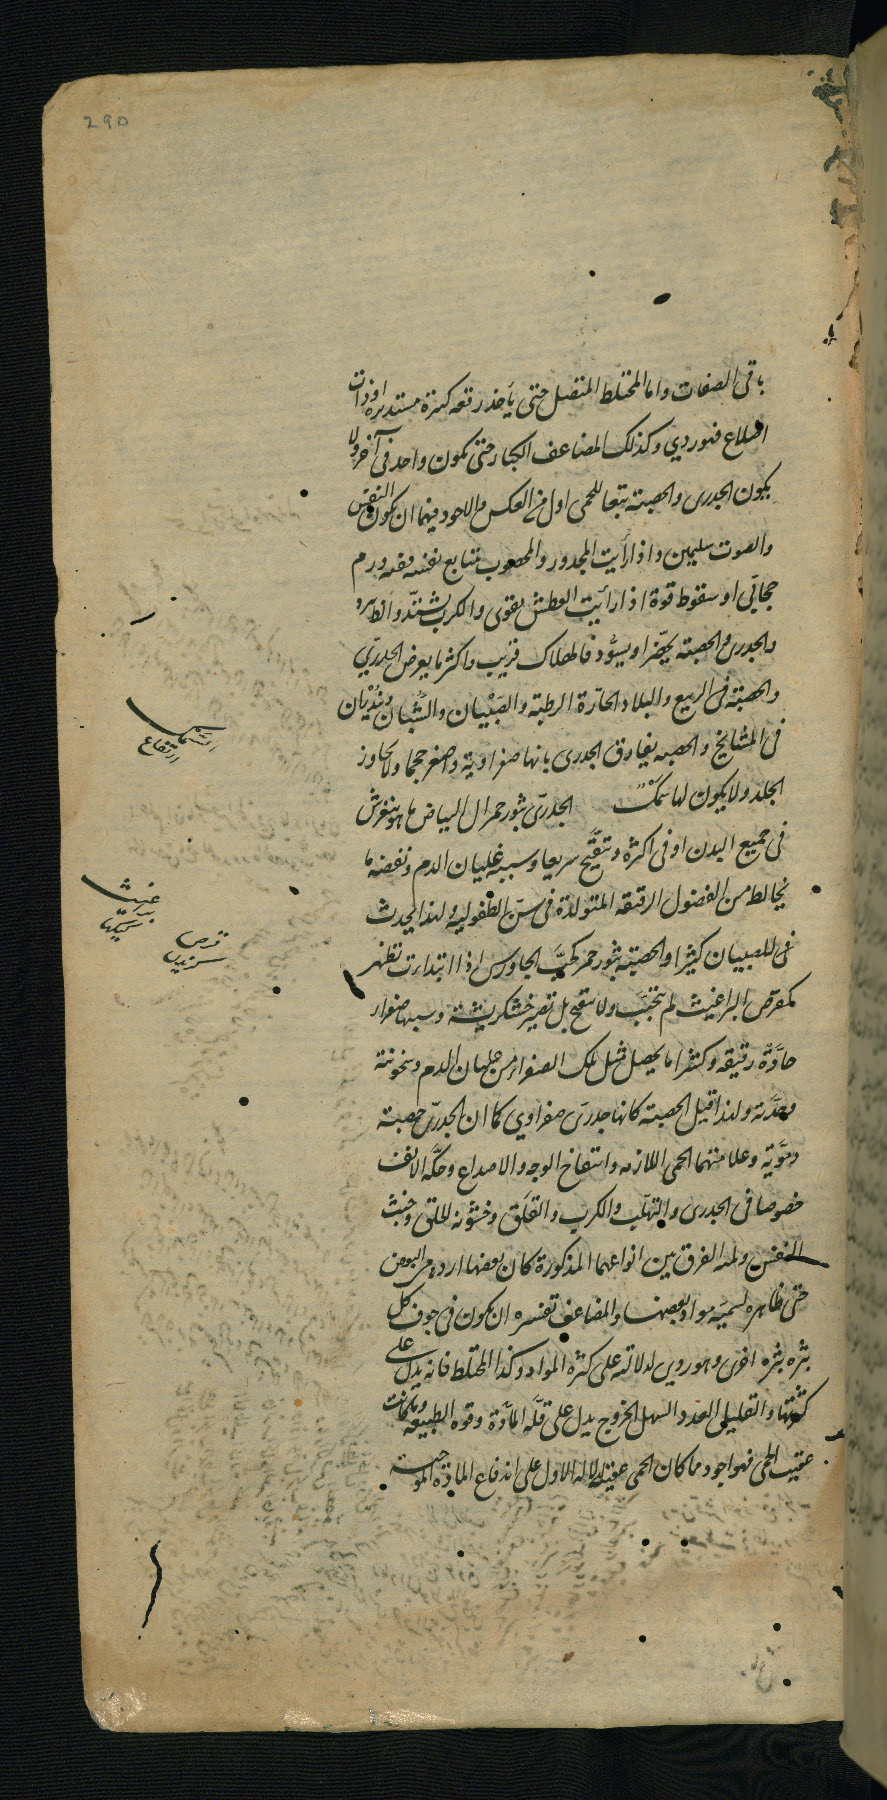 290
باقى الصفات واما المختلط المتصل حتى يأخذ رقعه كثيرة مستديره او ذات
اضلاع فهو ردي وكذلك المضاعف الكبار حتى يكون واحد فى آخر ولا
يكون الجدرى والحصبة تبعا للحمى اولى من العكس والاجود فيهما ان يكون النفس
والصوت سليمين واذا رأيت المجدور والمحصوب تتابع نفسه ورم
حجابى او سقوط قوة اذا رأيت العطش يقوى والكرب يشتد والظاهر
والجدرى والحصبة يخضر او يسود فالهلاك قريب واكثر ما يعرض الجدرى
والحصبة فى الربيع والبلاد الحارة الرطبة والصبيان والشبان
فى المشايخ والحصبه يفارق الجدرى بانها صفراوية واصغر حجما ولا تجاوز
الجلد ولا يكون لها سمك الجدرى بثور حمر الى البياض ما هو ينفرش
فى جميع البدن او فى اكثره وتتقيح سريعا وسببه غليان الدم ونفضه ما
يخالطه من الفضول الرقيقه المتولدة فى سن الطفوليه ولهذا يحدث
فى للصبيان كثيرا والحصبة بثور حمر كحب الجاورس اذا ابتداءت تظهر
كقرص البراغيث ثم تتحبب ولا تتقيح بل تصير خشكريشة وسببها صفراء
حادة رقيقه وكثيرا ما يحصل مثل تلك الصفراء من غليان الدم وسخونته
وحدته ولهذا قيل الحصبة كانها جدرى صفراوى كما ان الجدرى حصبة
دموية وعلامتهما الحمى اللازمه وانتفاخ الوجه والاصداغ وحكة الانف
خصوصا فى الجدرى والتهلب والكرب والقلق وخشونه الحلق وخبث
النفس ولمه الفرق بين انواعهما المذكورة كان بعضها اردء من البعض
حتى ظاهره لسميه مواد بعضها والمضاعف تفسيره ان يكون فى جوف كل
بثره بثره اخرى وهو ردى لدلالته على كثره المواد وكذا المختلط فانه يدل على
كثرتها والقليل العدد السهل الخروج يدل على قله المادة وقوه الطبيعه وما كانت
عقيب الحمى فهو اجود مما كان الحمى عقيبه لدلاله الاول على اندفاع المادة الموجبة
الشمس
ارتفاع
برغيث
قرص